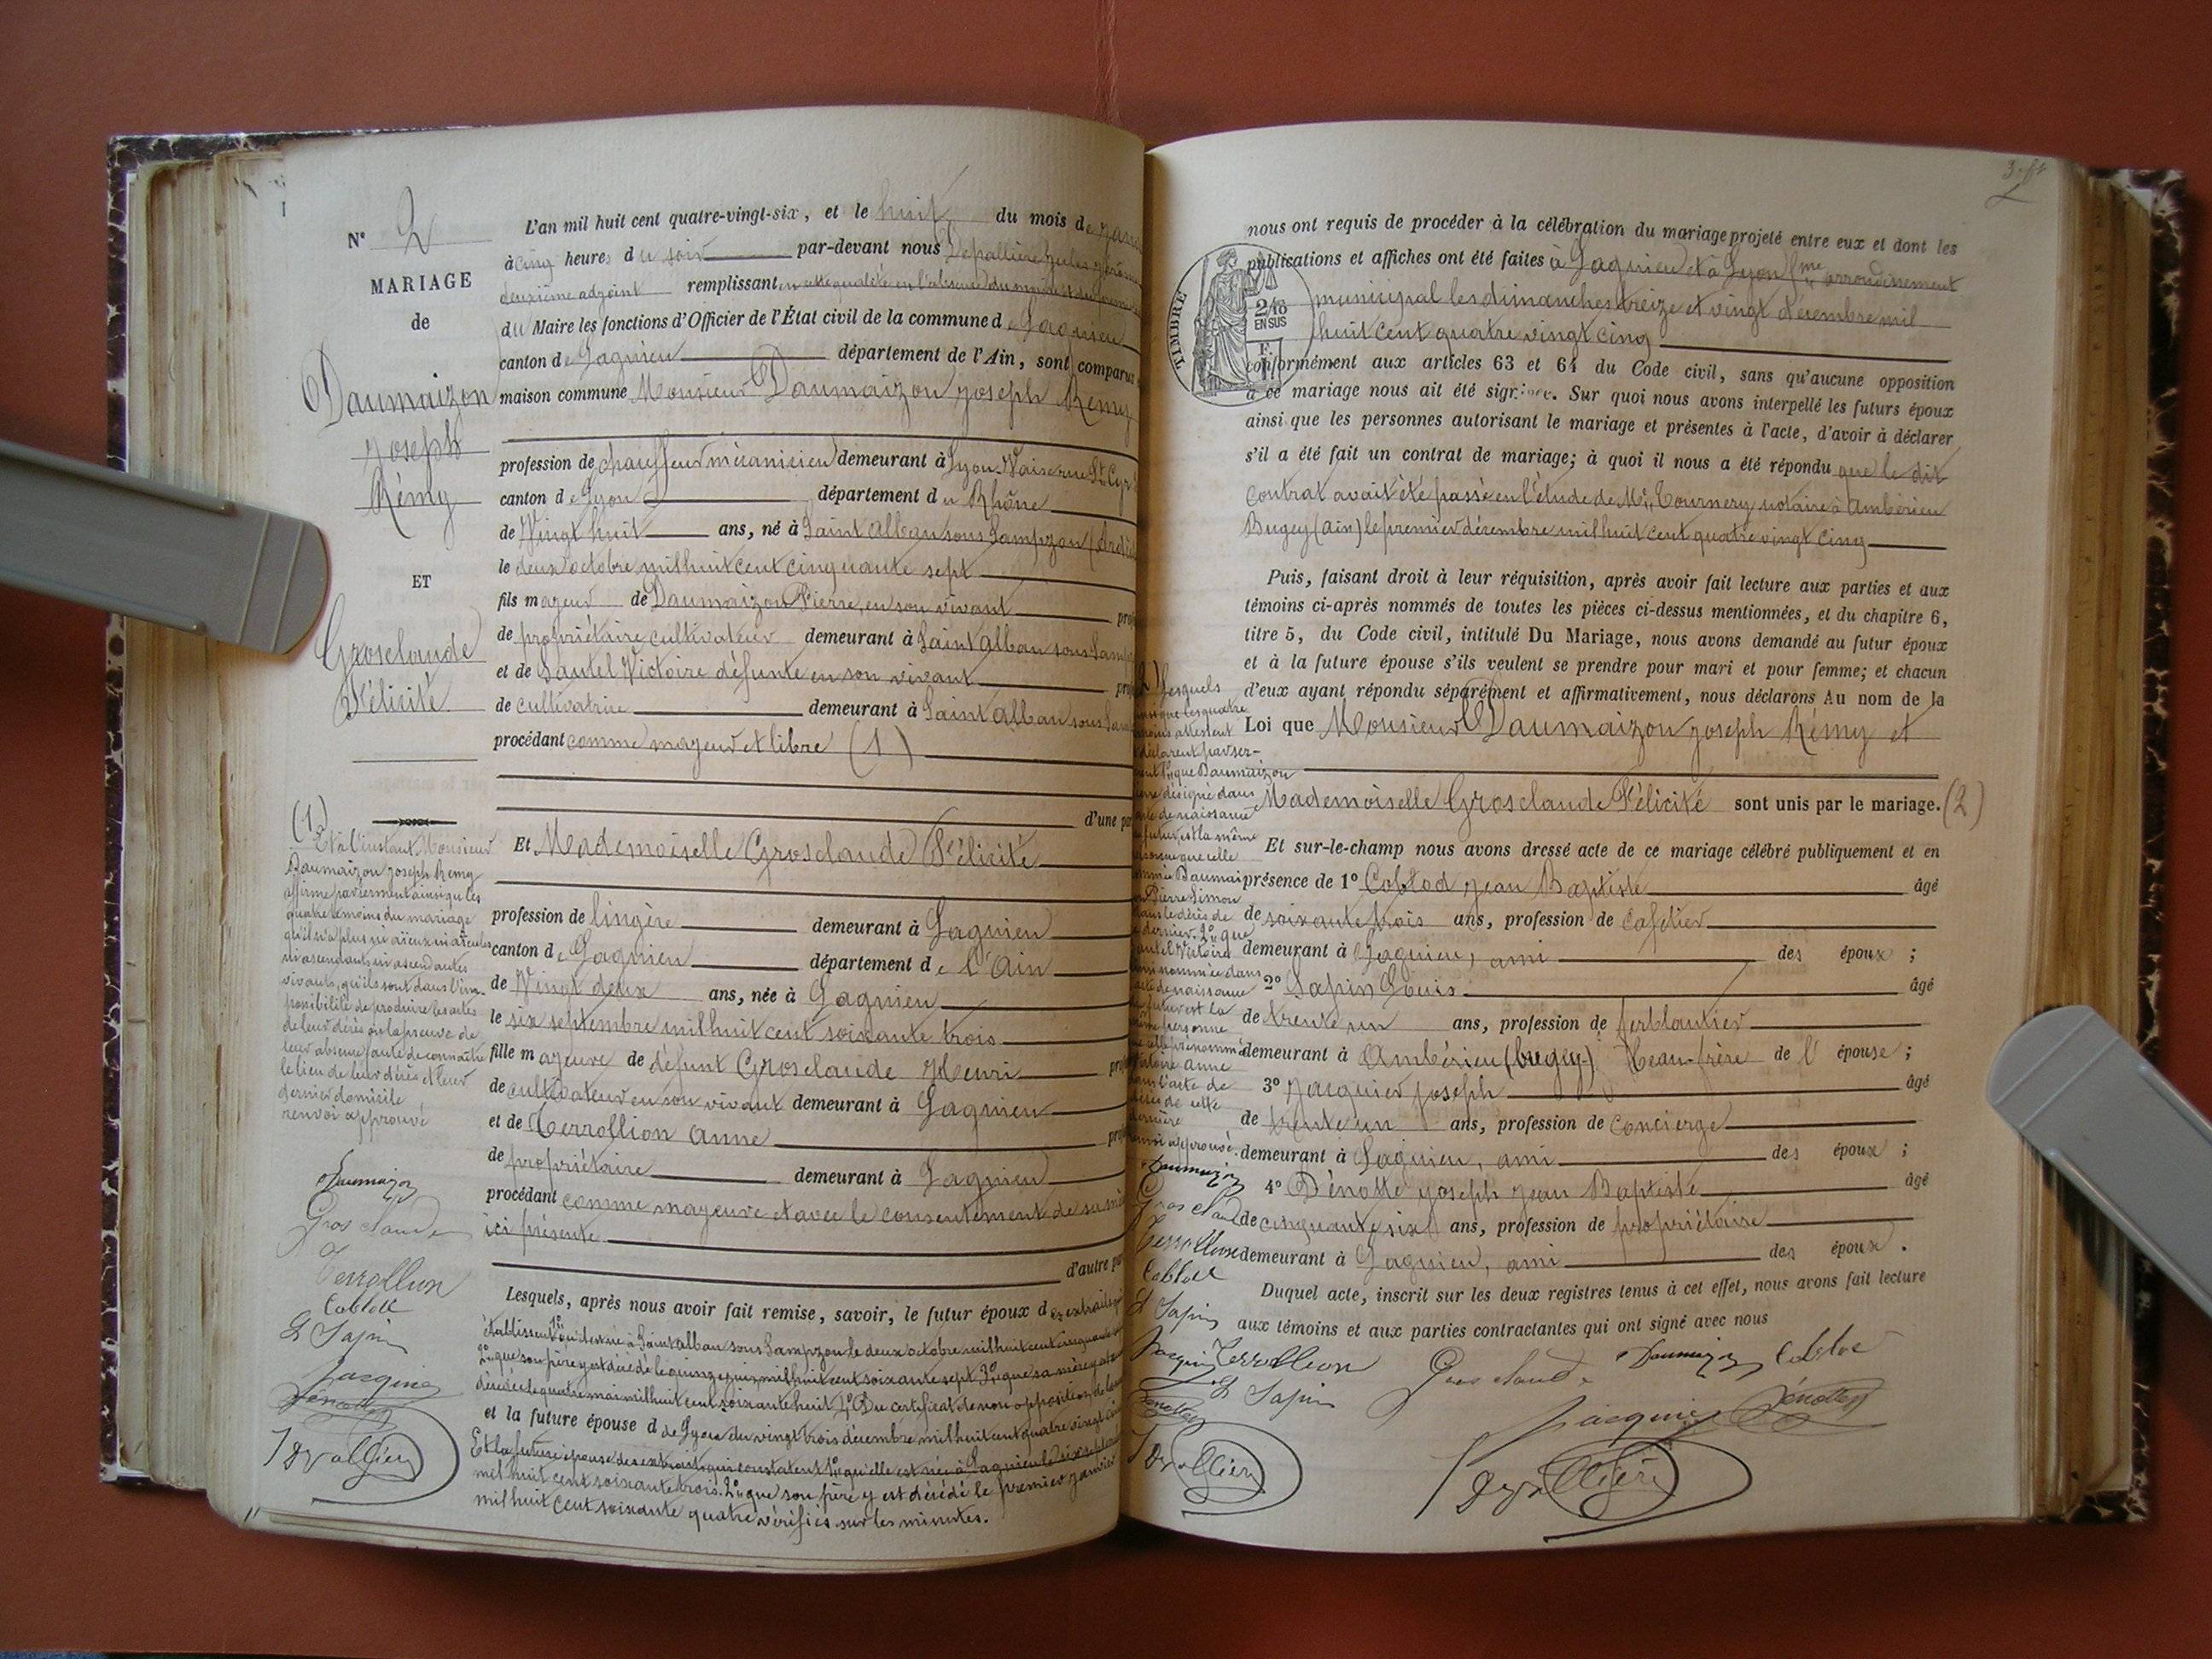 N° 2
MARIAGE
de
Daumaizon
Joseph
Rémy
ET
Grosclaude
Félicité
L'an mil huit cent quatre-vingt-six, et le huit du mois de
à cinq heures du soir par-devant nous Depallière Jules
deuxième adjoint remplissant en cette qualité en l'absence du maire et du
du Maire les fonctions d'Officier de l'État civil de la commune de Lagnieu
canton de Lagnieu département de l'Ain, sont comparus
maison commune Monsieur Daumaizon Joseph Remy
profession de chauffeur mécanicien demeurant à Lyon Vaise rue St Cyr
canton de Lyon département du Rhône
de Vingt huit ans, né à Saint Alban sous Sampzon
le deux octobre mil huit cent cinquante sept
fils majeur de Daumaizon Pierre, en son vivant
de propriétaire cultivateur demeurant à Saint Alban sous
et de Sautel Victoire défunte en son vivant
de cultivatrice demeurant à Saint Alban sous
procédant comme majeur et libre (1)
d'une
Et Mademoiselle Grosclaude Félicité
profession de lingère demeurant à Lagnieu
canton de Lagnieu département de l'Ain
de Vingt deux ans, née à Lagnieu
le six septembre mil huit cent soixante trois
fille majeure de défunt Grosclaude Henri
de cultivateur en son vivant demeurant à Lagnieu
et de Terrollion Anne
de propriétaire demeurant à Lagnieu
procédant comme majeure et avec le consentement de sa
ici présente
d'autre
Lesquels, après nous avoir fait remise, savoir, le futur époux des extraits
établissent 1° qu'il est né à Saint Alban sous Sampzon le deux octobre mil huit cent cinquante
2° que son père y est décédé le quinze juin mil huit cent soixante sept 3° que sa mère y est
décédée le quatre mai mil huit cent soixante huit 4° Du certificat de non opposition
et la future épouse d de Lyon du vingt trois décembre mil huit cent quatre vingt
Et la future épouse des extraits qui constatent 1° qu'elle est née à Lagnieu le six
mil huit cent soixante trois. 2° que son père y est décédé le premier janvier
mil huit cent soixante quatre vérifiés sur les minutes.
(1)
Et à l'instant Monsieur
Daumaizon Joseph Remy
affirme par serment ainsi que les
quatre témoins du mariage
qu'il n'a plus ni aïeux ni aïeules
ni ascendants ni ascendantes
vivants, qu'ils sont dans l'im-
possibilité de produire les actes
de leur décès ou la preuve de
leur absence faute de connaître
le lieu de leur décès et leur
dernier domicile
renvoi approuvé
Daumaizon
Grosclaude
Terrollion
Cobtod
L Sapin
Jacquier
Dénotte
Depallière
nous ont requis de procéder à la célébration du mariage projeté entre eux et dont les
publications et affiches ont été faites à Lagnieu et à Lyon arrondissement
municipal les dimanches treize et vingt décembre mil
huit cent quatre vingt cinq
TIMBRE
2/10
EN SUS
conformément aux articles 63 et 64 du Code civil, sans qu'aucune opposition
à ce mariage nous ait été signifiée. Sur quoi nous avons interpellé les futurs époux
ainsi que les personnes autorisant le mariage et présentes à l'acte, d'avoir à déclarer
s'il a été fait un contrat de mariage; à quoi il nous a été répondu que le dit
contrat avait été passé en l'étude de Me Tournery notaire à Ambérieu
Bugey (Ain) le premier décembre mil huit cent quatre vingt cinq
Puis, faisant droit à leur réquisition, après avoir fait lecture aux parties et aux
témoins ci-après nommés de toutes les pièces ci-dessus mentionnées, et du chapitre 6,
titre 5, du Code civil, intitulé Du Mariage, nous avons demandé au futur époux
et à la future épouse s'ils veulent se prendre pour mari et pour femme; et chacun
d'eux ayant répondu séparément et affirmativement, nous déclarons Au nom de la
Loi que Monsieur Daumaizon Joseph Rémy et
Mademoiselle Grosclaude Félicité sont unis par le mariage. (2)
Et sur-le-champ nous avons dressé acte de ce mariage célébré publiquement et en
présence de 1° Cobtod Jean Baptiste âgé
de soixante trois ans, profession de cafetier
demeurant à Lagnieu, ami des époux ;
2° Sapin Louis âgé
de trente un ans, profession de ferblantier
demeurant à Ambérieu (bugey) beau-frère de l'épouse ;
3° Jacquier Joseph âgé
de trente un ans, profession de concierge
demeurant à Lagnieu, ami des époux ;
4° Dénotte Joseph Jean Baptiste âgé
de cinquante six ans, profession de propriétaire
demeurant à Lagnieu, ami des époux.
Duquel acte, inscrit sur les deux registres tenus à cet effet, nous avons fait lecture
aux témoins et aux parties contractantes qui ont signé avec nous
Terrollion Grosclaude Daumaizon Cobtod
L Sapin Jacquier Dénotte
Depallière
lesquels
que les quatre
attestent
déclarent par ser-
que Daumaizon
désigné dans
de naissance
futur, est la même
que celle
Pierre Simon
le décès de
dernier. 2° que
Victoire
nommée dans
de naissance
futur est la
personne
Anne
l'acte de
de cette
dernière
approuvé.
Daumaizon
Grosclaude
Terrollion
Cobtod
L Sapin
Jacquier
Dénotte
Depallière